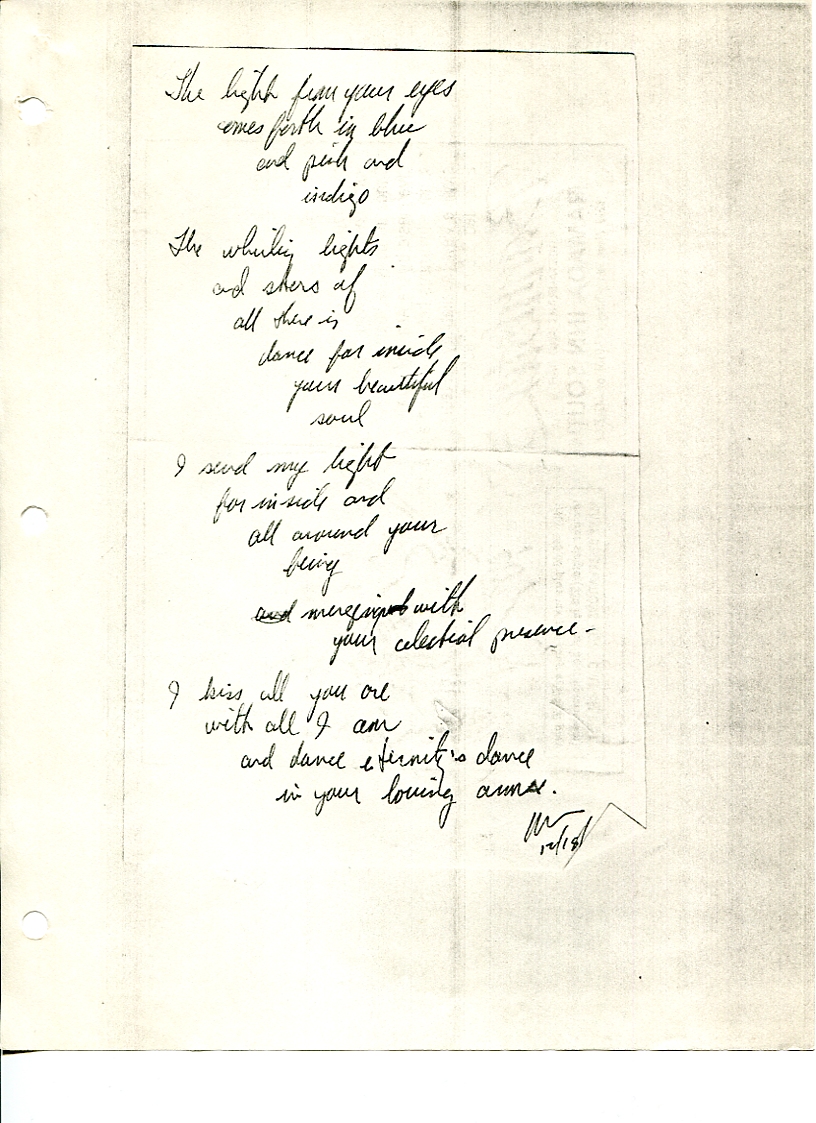 The light from your eyes
comes forth in blue
and pink and
indigo
The whirling lights
and stars of
all there is
dance far inside
your beautiful
soul
I send my light
far inside and
all around your
being
and merging with
your celestial presence -
I kiss all you are
with all I am
and dance eternity's dance
in your loving arms.
12/18
RAMADA INN SOUTH